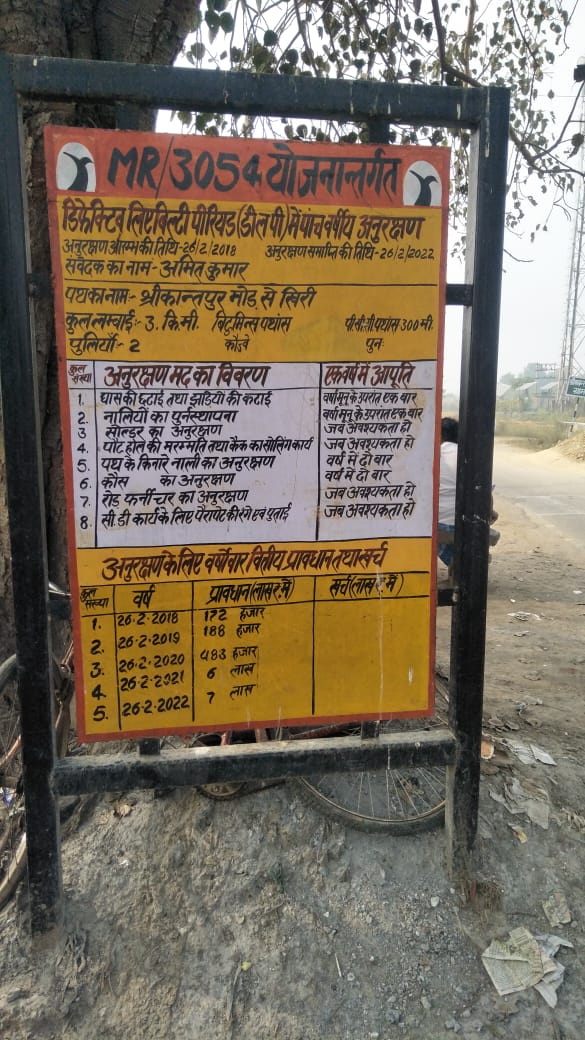 MR/3054 योजनान्तर्गत
डिफेक्टिव लिएबिल्टी पीरियड (डी.ल.पी) में पांच वर्षीय अनुरक्षण
अनुरक्षण आरम्भ की तिथि-26/2/2018 अनुरक्षण समाप्ति की तिथि-26/2/2022
संवेदक का नाम - अमित कुमार
पथ का नाम:- श्रीकान्तपुर मोड़ से खिरी
कुल लम्बाई:- 3. कि.मी. बिटुमिन्स पथांस पी.सी.सी पथांस 300 मी.
पुलियाँ:- 2 कॉजवे पुनः
कुल संख्या अनुरक्षण मद का विवरण एक वर्ष में आपूर्ति
1. घास की छटाई तथा झाडियो की कटाई वर्षा मृतु के उपरांत एक बार
2. नालियों का पुर्नस्थापना वर्षा मृतु के उपरांत एक बार
3 सोल्डर का अनुरक्षण जब अवश्यकता हो
4. पॉट होल की मरम्मति तथा कैक का सीलिंग कार्य जब अवश्यकता हो
5. पथ के किनारे नाली का अनुरक्षण वर्ष में दो बार
6. कौस का अनुरक्षण वर्ष में दो बार
7. रोड फर्नीचर का अनुरक्षण जब अवश्यकता हो
8. सी.डी कार्य के लिए पैरापेट की रंगे एवं पुताई जब अवश्यकता हो
अनुरक्षण के लिए वर्षोवार वितीय प्रावधान तथा खर्च
कुल संख्या वर्ष प्रावधान (लाख रू. में) खर्च (लाख रू. में)
1. 26-2-2018 172 हजार
2. 26-2-2019 188 हजार
3. 26-2-2020 483 हजार
4. 26-2-2021 6 लाख
5. 26-2-2022 7 लाख